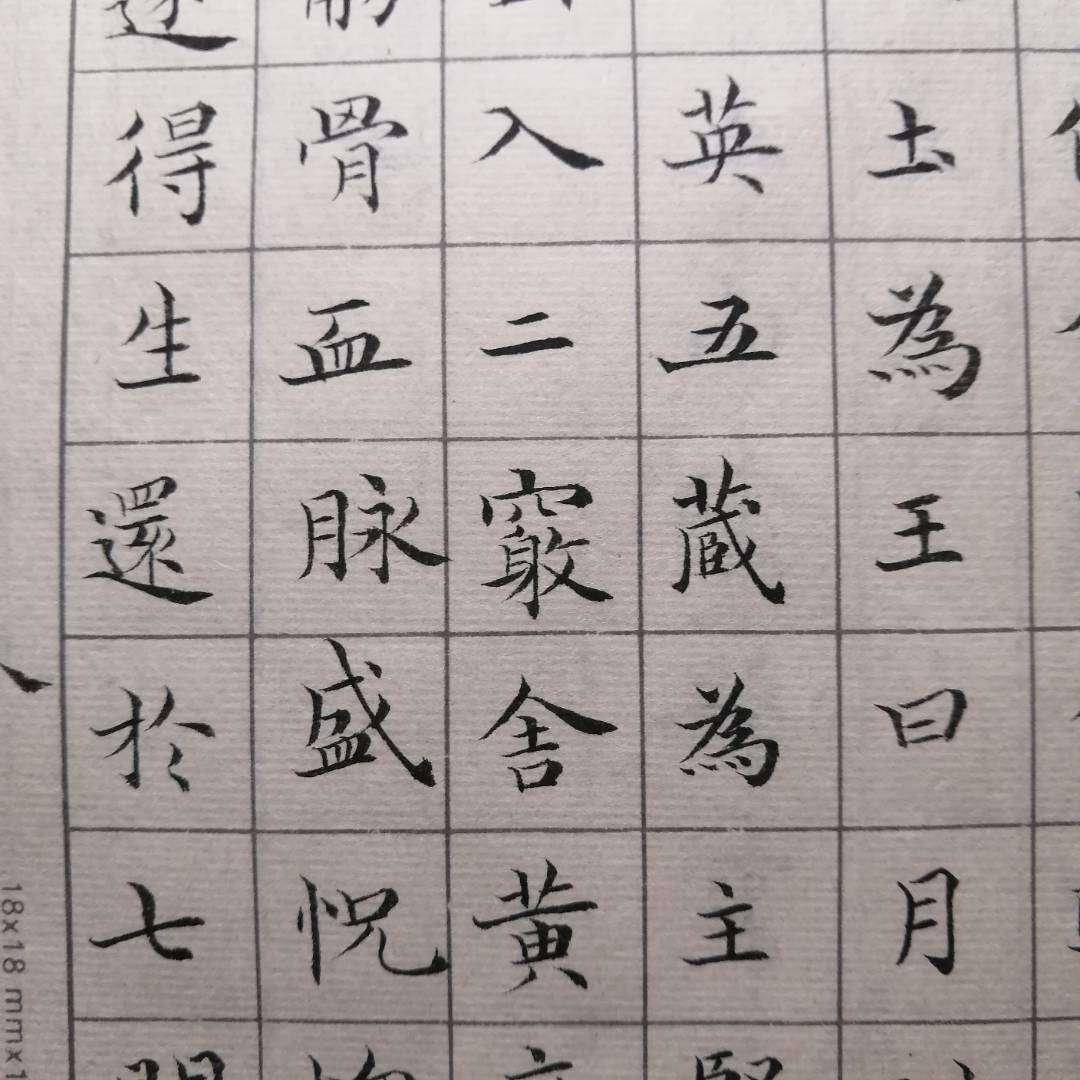 圡為王日月
英五蔵為主
入二竅舍黃
骨血脉盛怳
得生還於七
18x18 mmx1